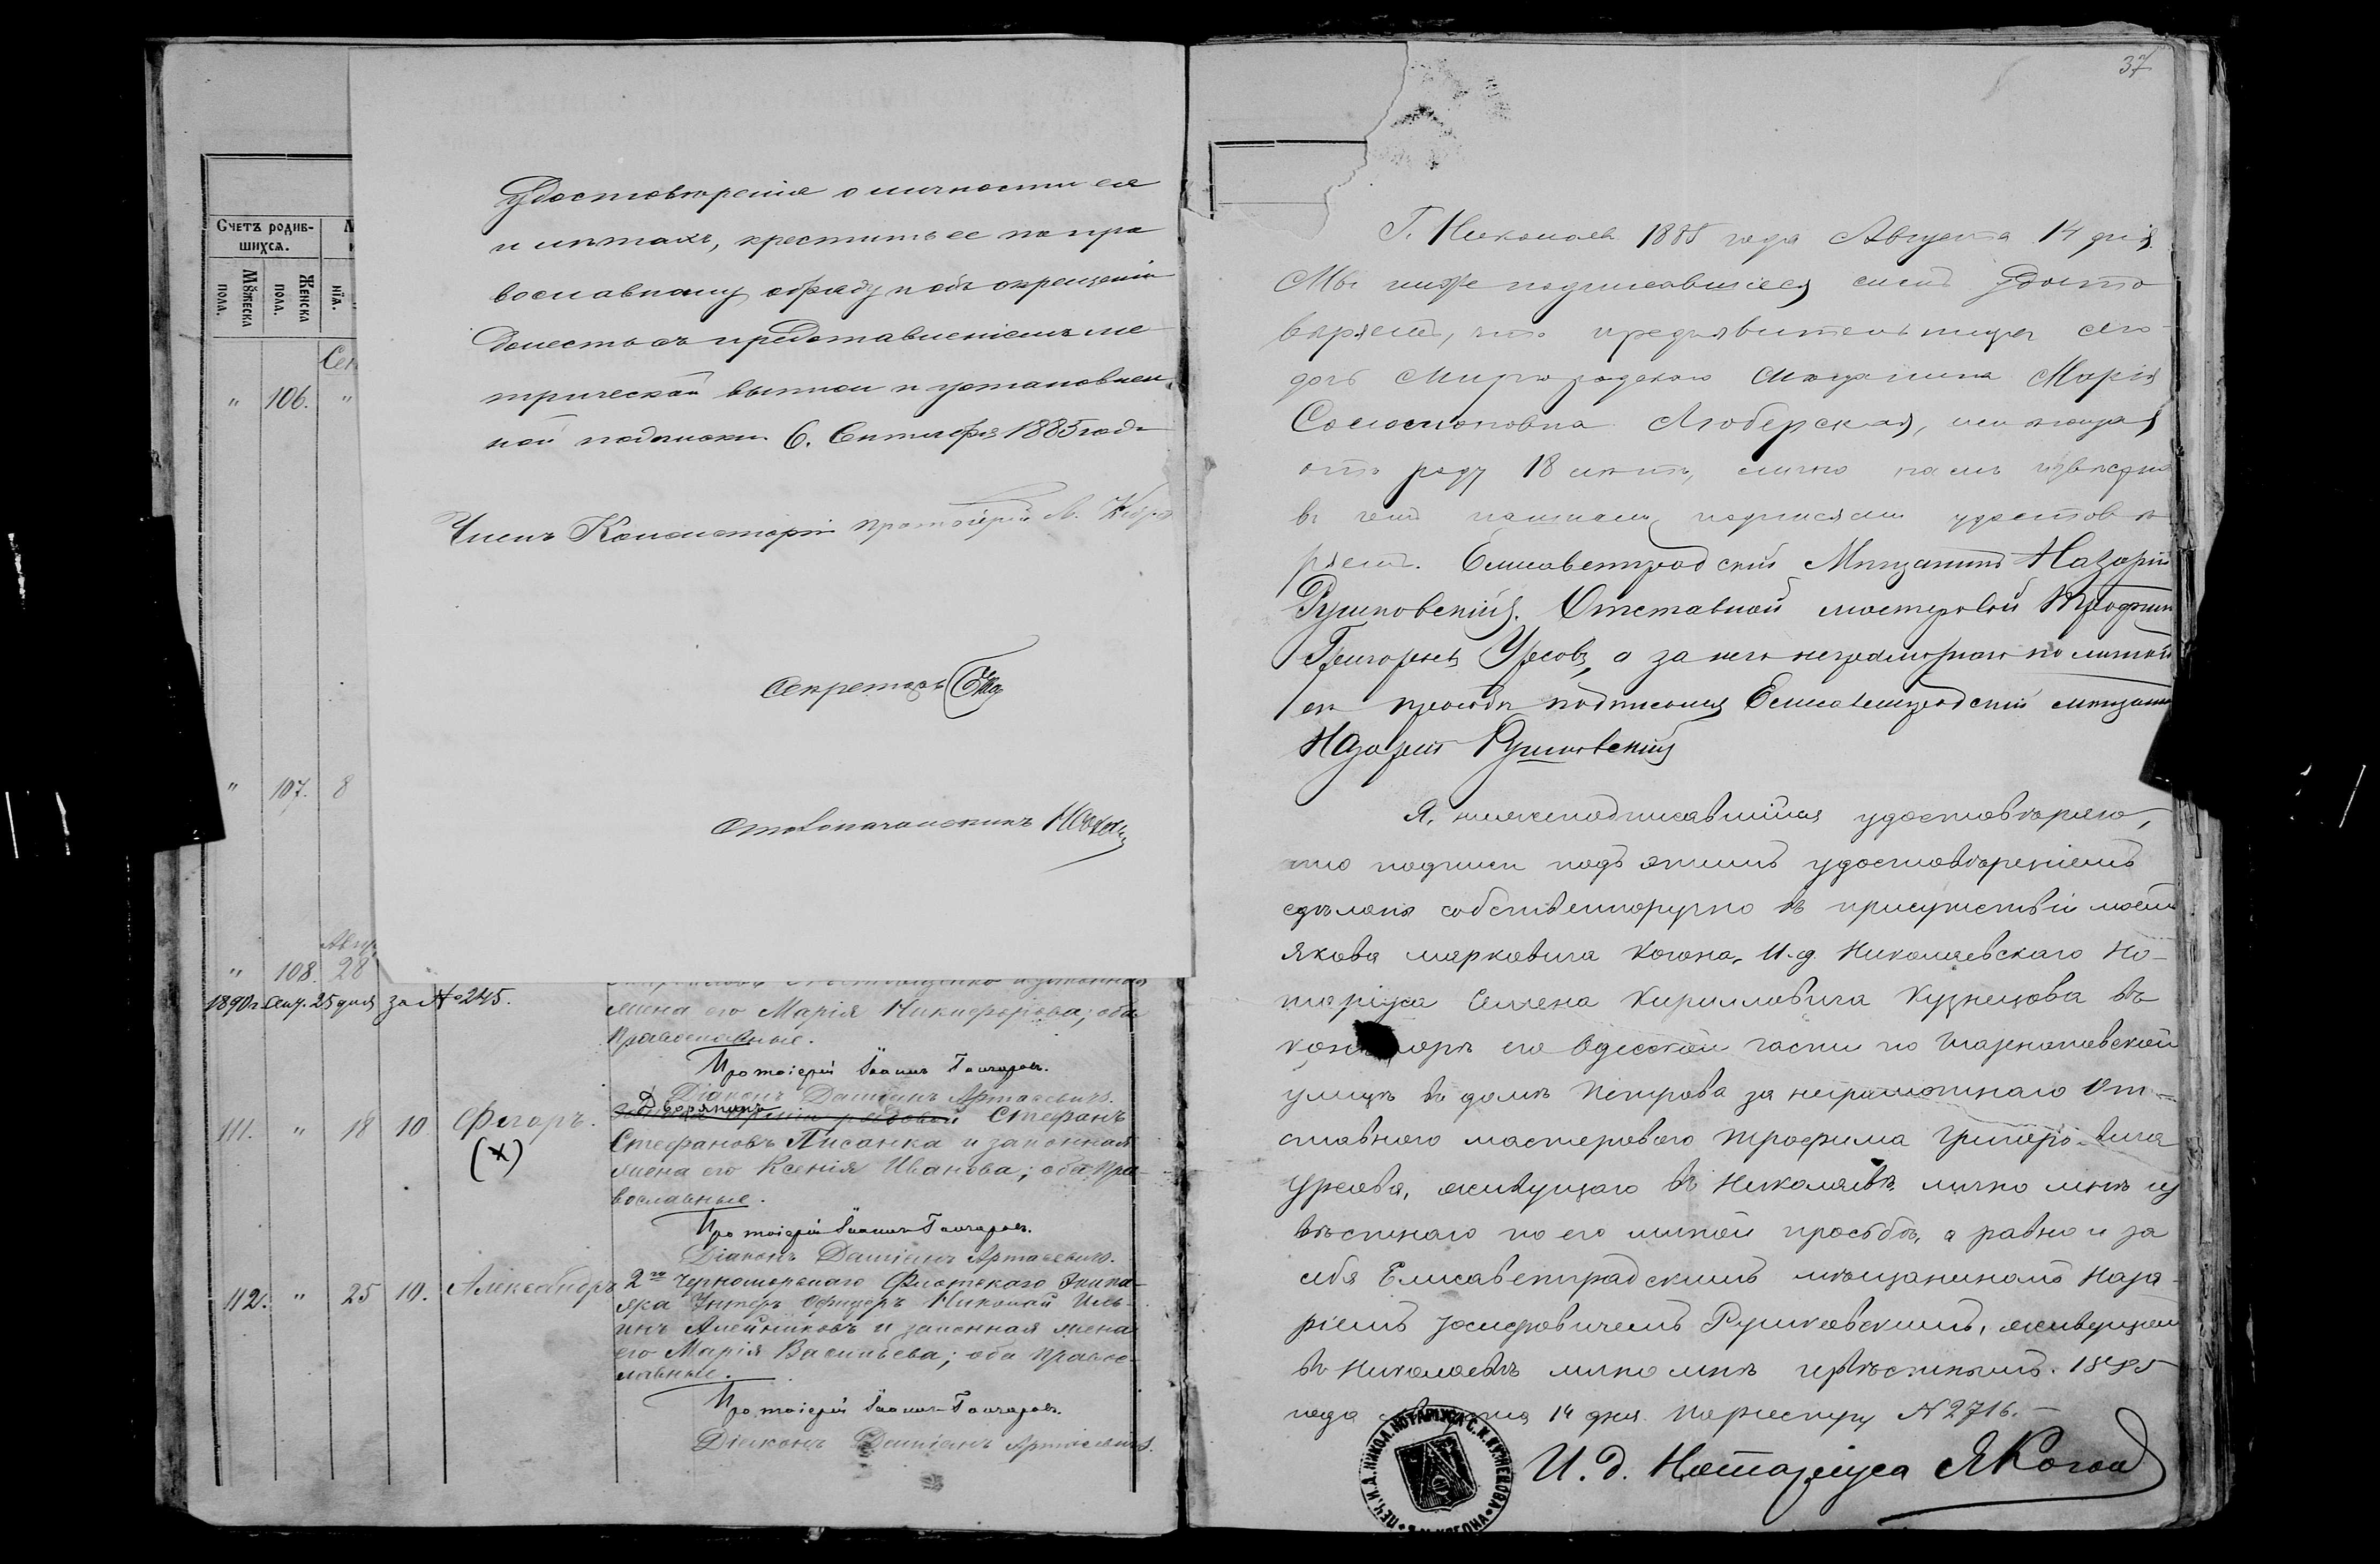 Удостовѣренiе о личности ея
и лѣтахъ, крестить ее по пра
вославному обряду и объ окрещенiи
донесть съ представленiемъ ме
трической выписи и установлен
ной подписки 6. Сентября 1885 года
Членъ Консисторiи Протоiерей
Секретарь
Столоначальникъ
Счетъ родив-
шихся.
Мꙋжеска пола.
Женска пола.
нiя.
Сен
" 106. "
" 107. 8
Авгу
" 108. 28
1890 г. Сент. 25 дня за № 245.
жена его Марiя Никифорова; оба
православные.
Протоiерей Iоаннъ Гончаровъ.
Дiаконъ Дамiанъ Артасевичъ.
111. " 18 10. Фегоръ. (х)
Дворянинъ Стефанъ
Стефановъ Писанка и законная
жена его Ксенiя Иванова; оба пра-
вославные.
Протоiерей Iоаннъ Гончаровъ.
Дiаконъ Дамiанъ Артасевичъ.
112. " 25 10. Александръ
2го Черноморскаго Флотскаго Экипа-
жа Унтеръ Офицеръ Николай Иль-
инъ Алейниковъ и законная жена
его Марiя Васильева; оба правос-
лавные.
Протоiерей Iоаннъ Гончаровъ.
Дiаконъ Дамiанъ Артасевичъ.
37
Г. Николаевъ 1885 года Августа 14 дня.
Мы ниже подписавшiеся симъ удосто
вѣряемъ, что предъявительница сего
дочь Миргородскаго Мѣщанина Марiя
Соломоновна Люберская, имѣющая
отъ роду 18 лѣтъ, лично намъ извѣстна
въ чемъ нашими подписями удостовѣ
ряемъ. Елисаветградскiй Мѣщанинъ Назарiй
Рушковскiй. Отставной мастеровой Трофимъ
Григорьевъ Уресовъ, а за него неграмотнаго по личной
его просьбѣ подписался Елисаветградскiй мѣщанинъ
Назарiй Рушковскiй
Я, нижеподписавшiйся удостовѣряю,
что подписи подъ этимъ удостовѣренiемъ
сдѣланы собственноручно въ присутствiи моемъ
Якова Марковича Когона, И. д. Николаевскаго Но-
тарiуса Семена Кирилловича Кузнецова въ
конторѣ его Одесской части по
улицѣ въ домѣ Петрова за неграмотнаго От-
ставного мастерового Трофима Григорьевича
Уресова, живущаго въ Николаевѣ, лично мнѣ из
вѣстнаго по его личной просьбѣ, а равно и за
себя Елисаветградскимъ мѣщаниномъ Наза-
рiемъ Iосифовичемъ Рушковскимъ, живущимъ
въ Николаевѣ лично мнѣ извѣстнымъ. 1885
года Августа 14 дня. По реестру № 2716.
И. д. Нотарiуса Я Когон
ПЕЧ. И. Д. НИКОЛ. НОТАРIУСА С. К. КУЗНЕЦОВА Я. М. КОГОНА